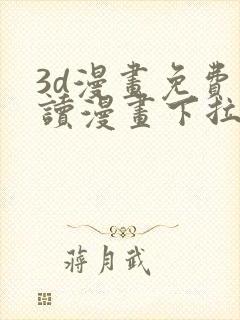 3d漫畫免費
讀漫畫下拉
蔣月武